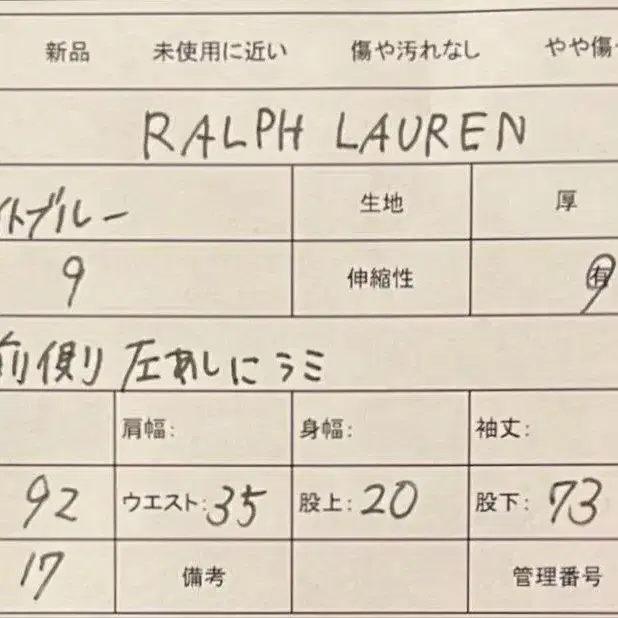 新品 未使用に近い 傷や汚れなし やや傷
RALPH LAUREN
イトブルー 生地 厚
9 伸縮性 有
前側 左あしにシミ
肩幅: 身幅: 袖丈:
92 ウエスト:35 股上:20 股下:73
17 備考 管理番号